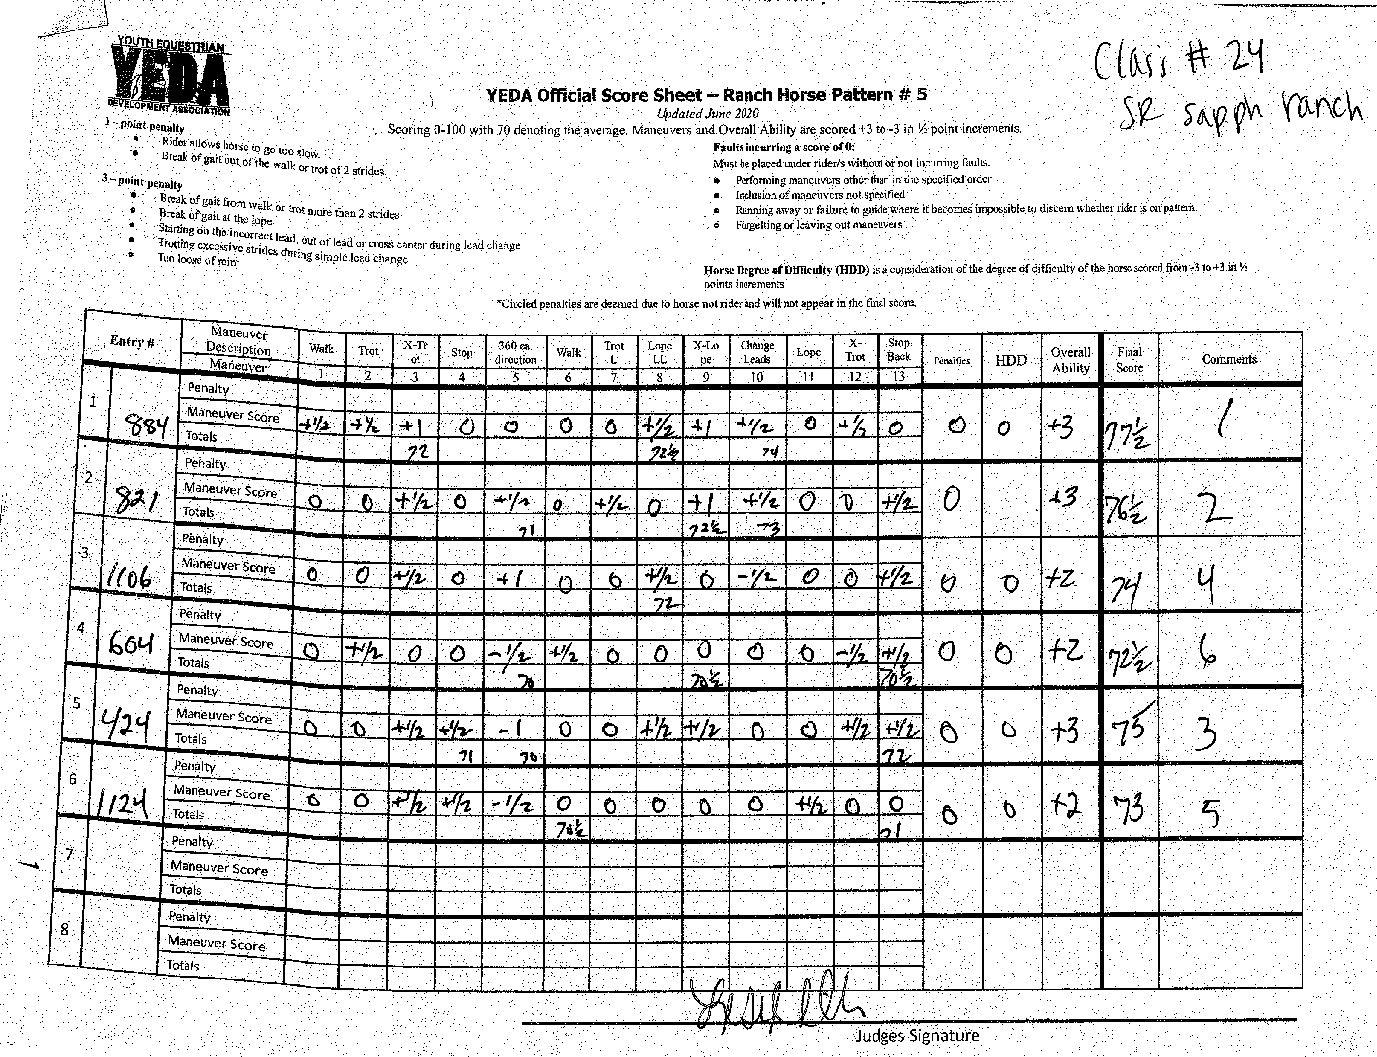 YOUTH EQUESTRIAN
YEDA
DEVELOPMENT ASSOCIATION
Class # 24
SR sapph ranch
YEDA Official Score Sheet – Ranch Horse Pattern # 5
Updated June 2020
Scoring 0-100 with 70 denoting the average. Maneuvers and Overall Ability are scored +3 to -3 in ½ point increments.
1 – point penalty
• Rider allows horse to go too slow.
• Break of gait out of the walk or trot of 2 strides.
3 – point penalty
• Break of gait from walk or trot more than 2 strides
• Break of gait at the lope
• Starting on the incorrect lead, out of lead or cross canter during lead change
• Trotting excessive strides during simple lead change
• Too loose of rein
Faults incurring a score of 0:
Must be placed under rider/s without or not incurring faults.
• Performing maneuvers other than in the specified order
• Inclusion of maneuvers not specified
• Running away or failure to guide where it becomes impossible to discern whether rider is on pattern.
• Forgetting or leaving out maneuvers
Horse Degree of Difficulty (HDD) is a consideration of the degree of difficulty of the horse scored from -3 to +3 in ½
points increments
*Circled penalties are deemed due to horse not rider and will not appear in the final score.
Entry # Maneuver Description Walk Trot X-Tr ot Stop 360 ea. direction Walk Trot L Lope LL X-Lo pe Change Leads Lope X-Trot Stop Back Penalties HDD Overall Ability Final Score Comments
Maneuver 1 2 3 4 5 6 7 8 9 10 11 12 13
1 884 Penalty
Maneuver Score +1/2 +1/2 +1 0 0 0 0 +1/2 +1 +1/2 0 +1/2 0 0 0 +3 77½ 1
Totals 72 72½ 74
2 821 Penalty
Maneuver Score 0 0 +1/2 0 +1/2 0 +1/2 0 +1 +1/2 0 0 +1/2 0 +3 76½ 2
Totals 71 72½ 73
3 1106 Penalty
Maneuver Score 0 0 +1/2 0 +1 0 0 +1/2 0 -1/2 0 0 +1/2 0 0 +2 74 4
Totals 72
4 604 Penalty
Maneuver Score 0 +1/2 0 0 -1/2 +1/2 0 0 0 0 0 -1/2 +1/2 0 0 +2 72½ 6
Totals 70 70½ 70½
5 424 Penalty
Maneuver Score 0 0 +1/2 +1/2 -1 0 0 +1/2 +1/2 0 0 +1/2 +1/2 0 0 +3 75 3
Totals 71 70 72
6 1124 Penalty
Maneuver Score 0 0 +1/2 +1/2 -1/2 0 0 0 0 0 +1/2 0 0 0 0 +2 73 5
Totals 70½ 71
7 Penalty
Maneuver Score
Totals
8 Penalty
Maneuver Score
Totals
Judges Signature